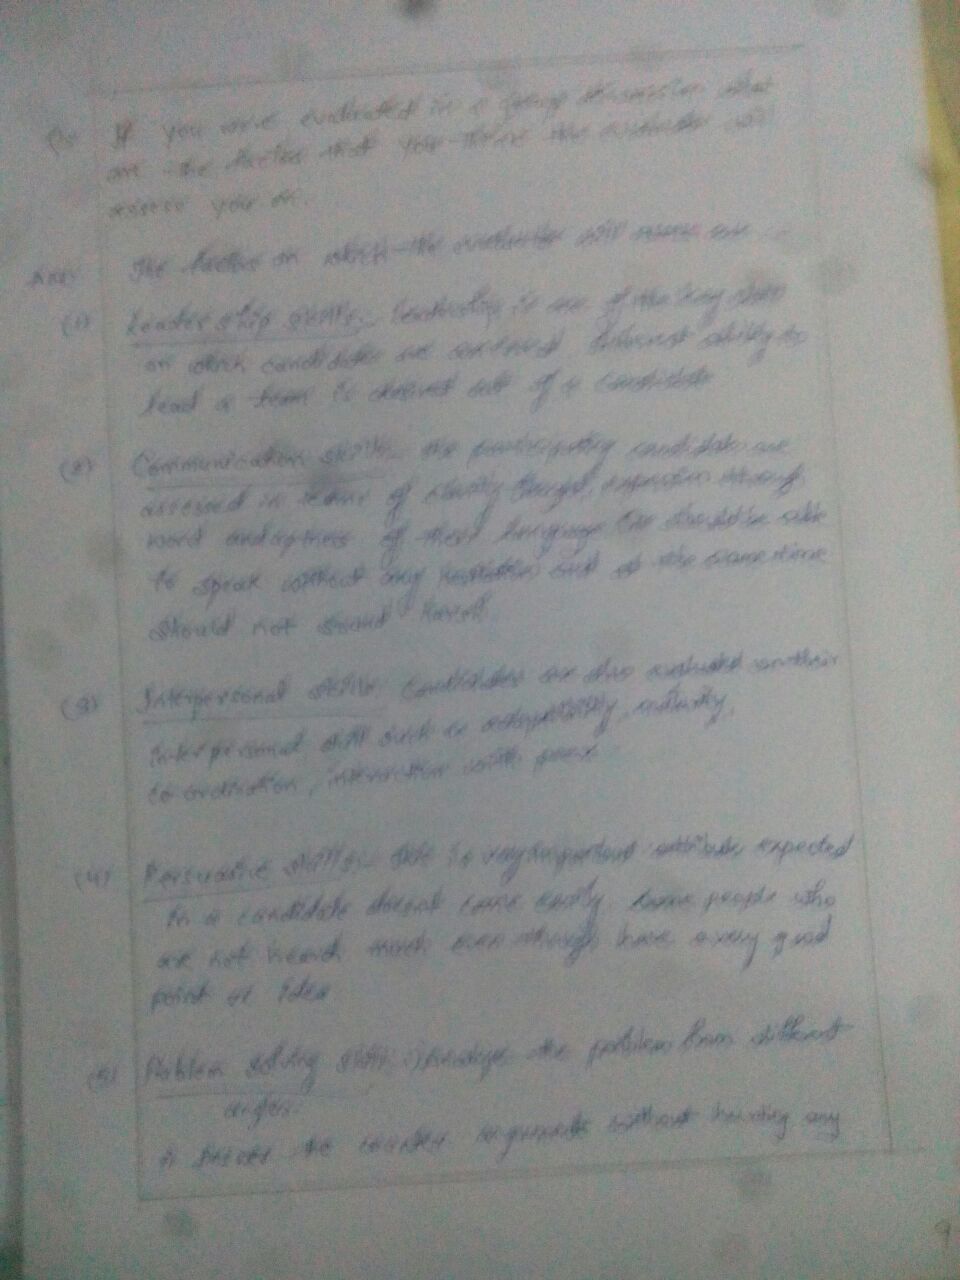 If you were evaluated in a group discussion what
are the factors that you think the evaluator will
assess you on.
Ans: The factors on which the evaluator will assess are :-
(1) Leadership skills:- Leadership is one of the key skills
on which candidates are assessed. ability to
lead a team is out of a candidate
(2) Communication skills:- the participating candidates are
assessed in terms of clarity thought, expression through
word and aptness of their language be able
to speak without any hesitation and at the same time
should not sound harsh.
(3) Interpersonal skills: Candidates are also evaluated on their
interpersonal skill such as adaptability, maturity,
co-ordination, interaction with peers.
(4) Persuasive skills:- this is very important attribute expected
in a candidate doesn't come easily. Some people who
are not heard much even though have a very good
point or idea
(5) Problem solving skills: the problem from different
angles.
to counter arguments without hurting any